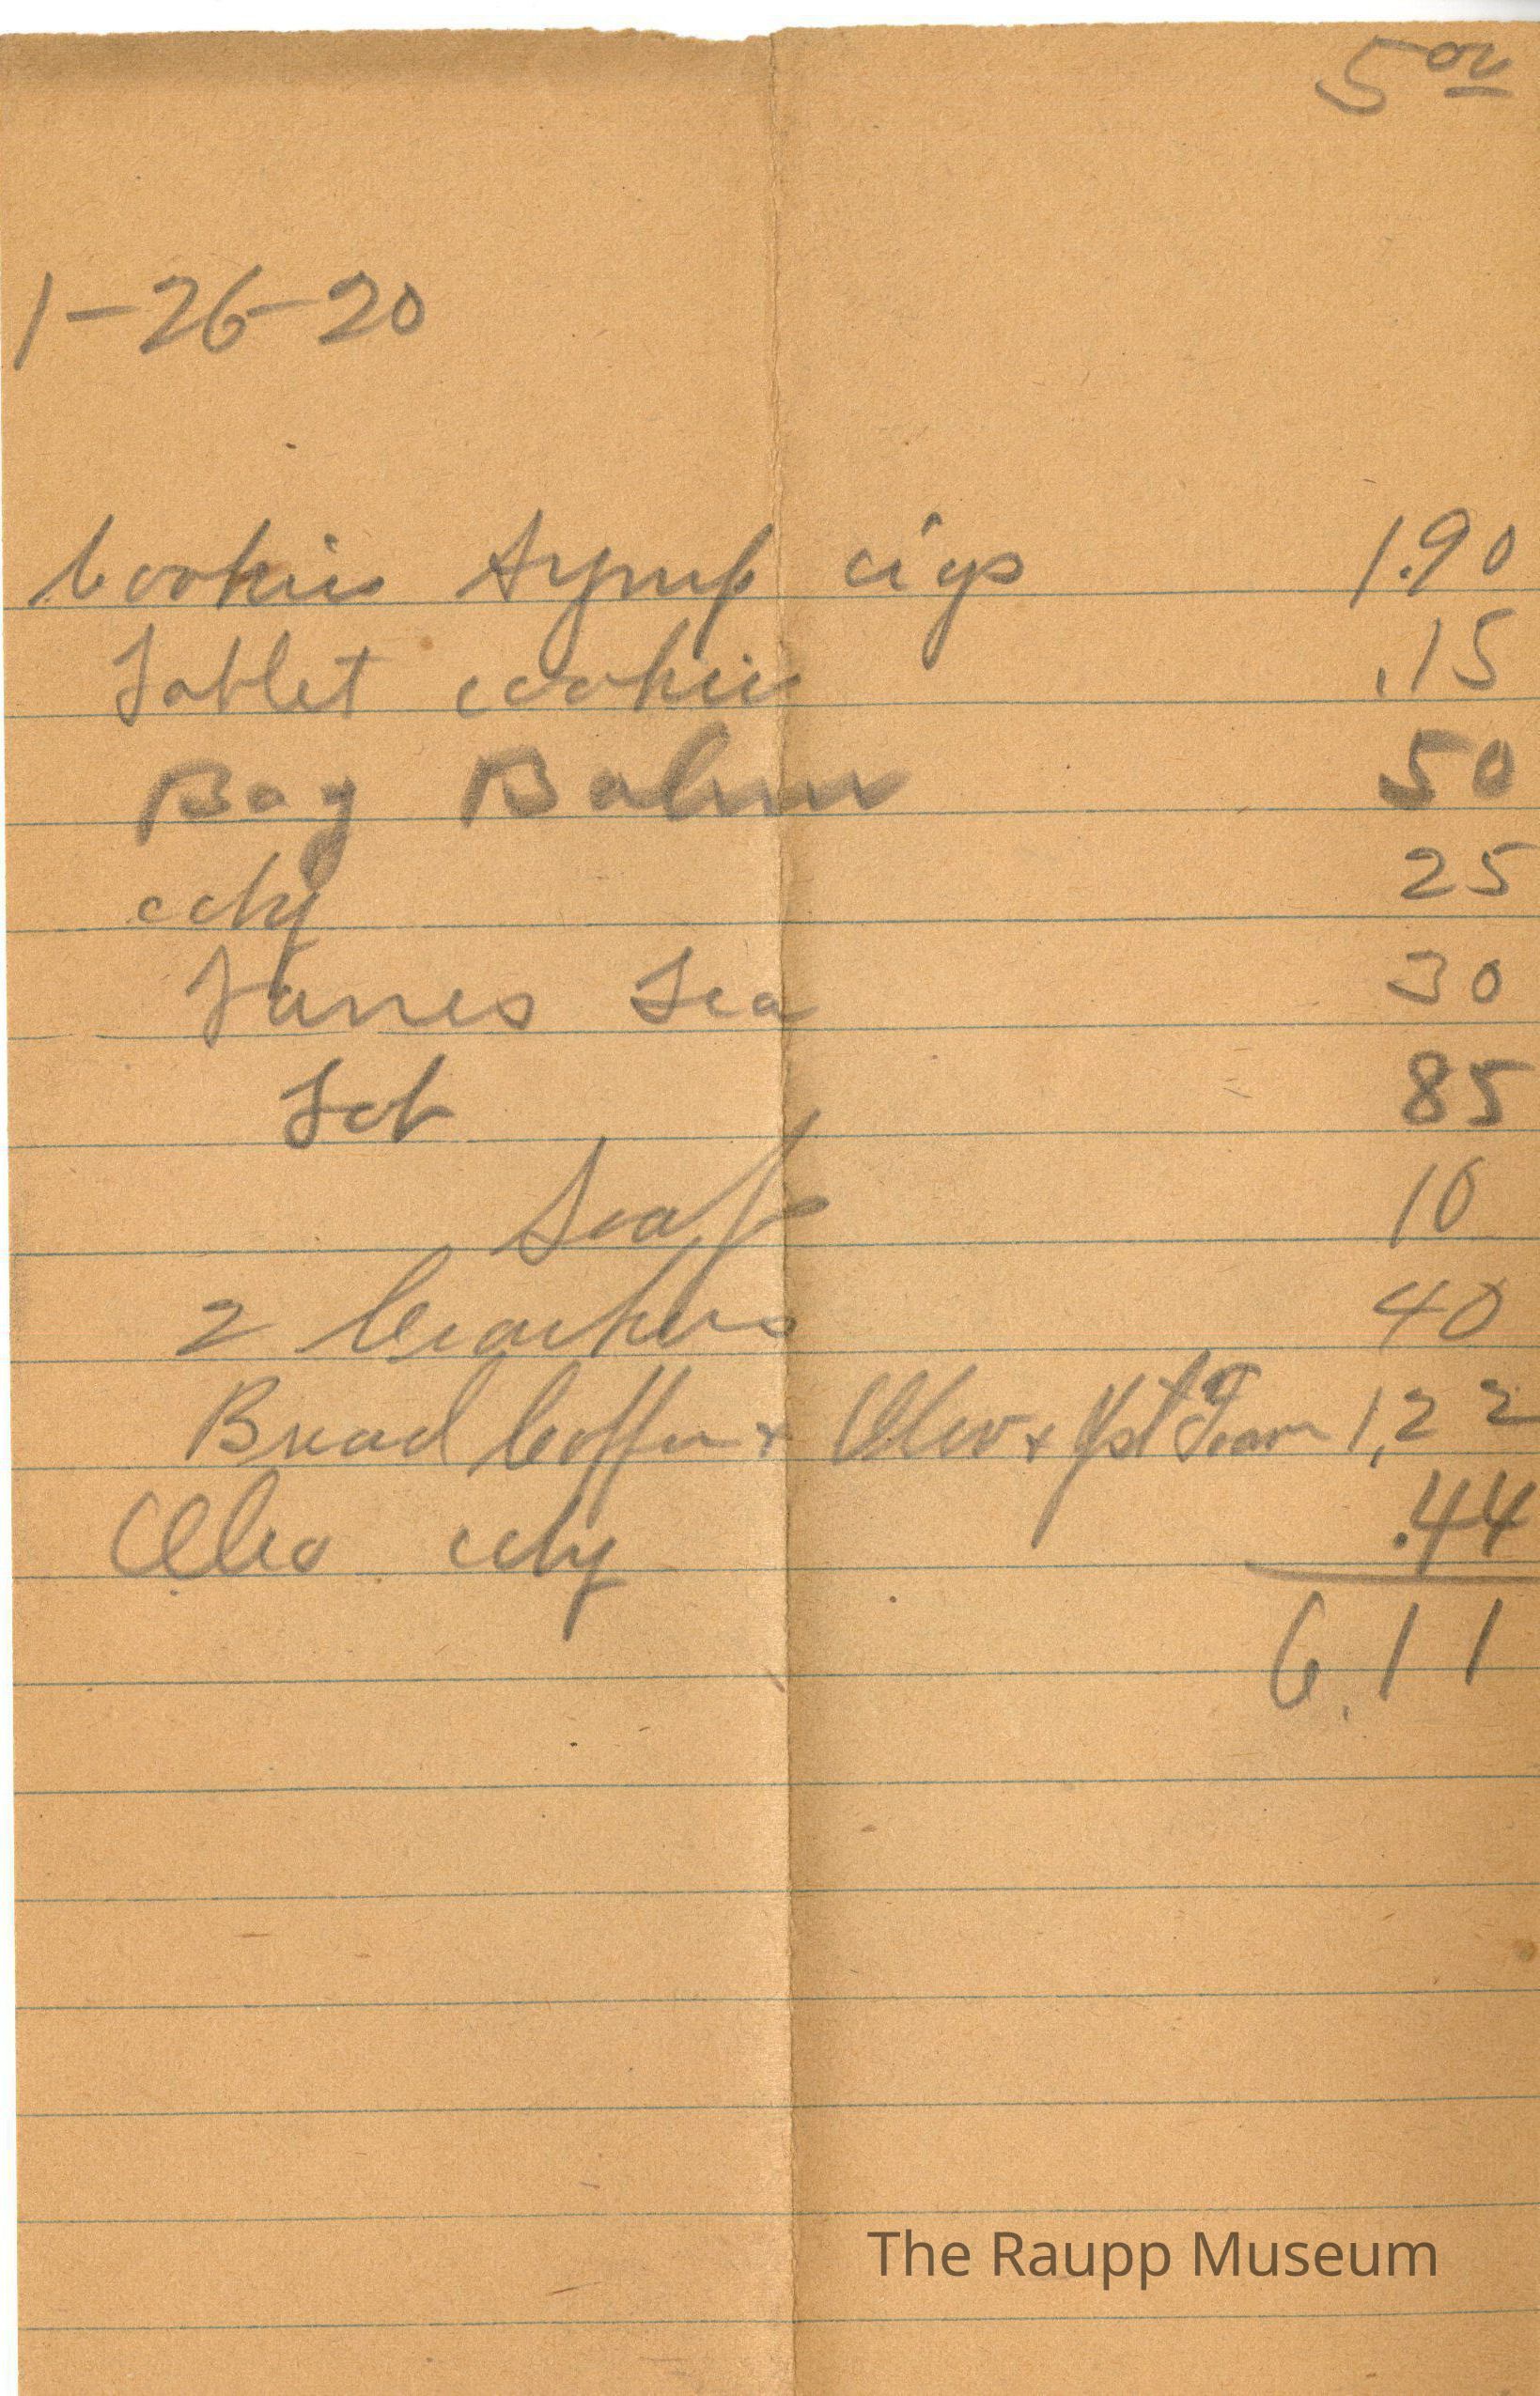 5 00
1-26-20
Cookies Syrup cigs 1.90
Tablet cookies .15
Bag Balm 50
25
James Tea 30
Tob 85
Soap 10
2 Crackers 40
Bread Coffee + Oleo + 1,22
Oleo .44
6.11
The Raupp Museum